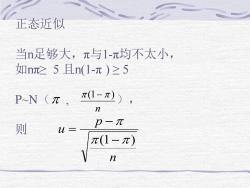 正态近似
当n足够大，π与1-π均不太小，
如nπ≥ 5 且n(1-π ) ≥ 5
P~N（π ， π(1−π)/n ），
则 u = (p − π) / √(π(1−π)/n)